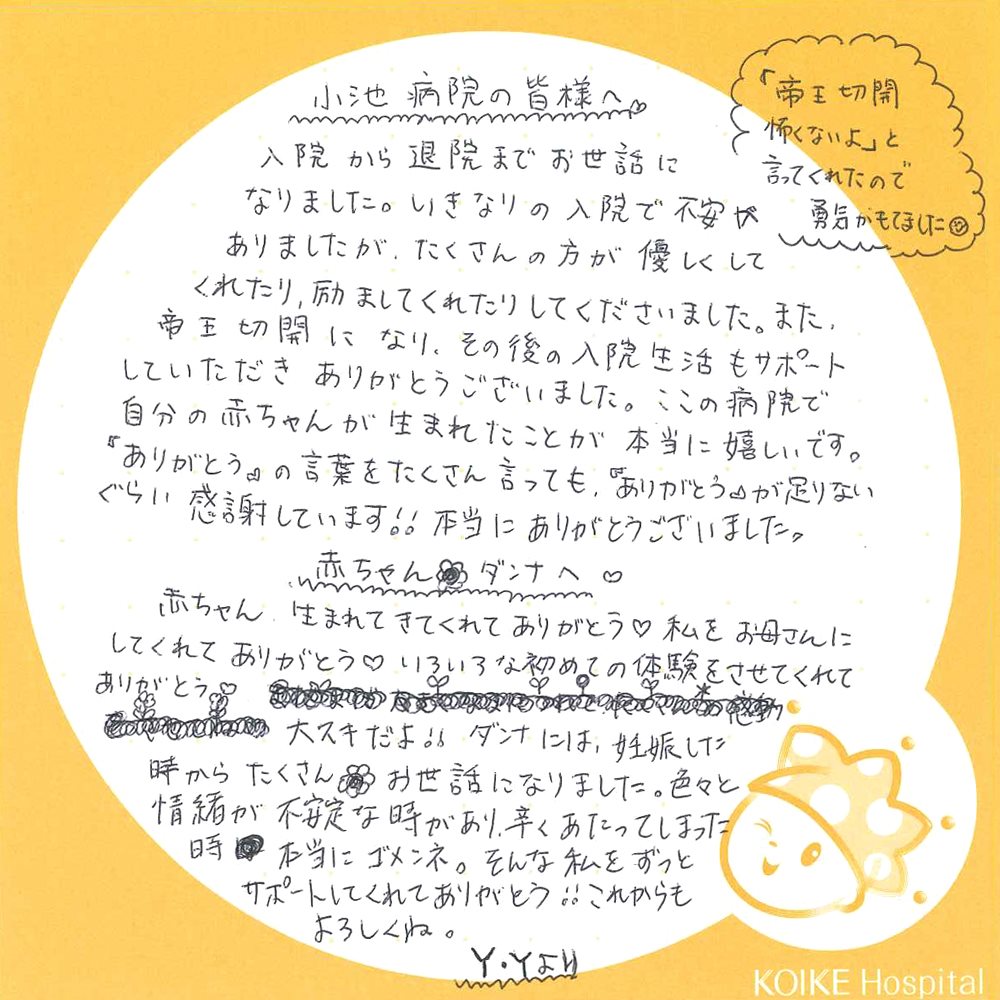 小池病院の皆様へ
入院から退院までお世話に
なりました。いきなりの入院で不安が
ありましたが、たくさんの方が優しくして
くれたり、励ましてくれたりしてくださいました。また、
帝王切開になり、その後の入院生活もサポート
していただきありがとうございました。ここの病院で
自分の赤ちゃんが生まれたことが本当に嬉しいです。
『ありがとう』の言葉をたくさん言っても、『ありがとう』が足りない
ぐらい感謝しています!!本当にありがとうございました。
「帝王切開
怖くないよ」と
言ってくれたので
勇気がもてました☺
赤ちゃん ダンナへ♡
赤ちゃん、生まれてきてくれてありがとう♡私をお母さんに
してくれてありがとう♡いろいろな初めての体験をさせてくれて
ありがとう♡
大スキだよ!!ダンナには、妊娠した
時からたくさんお世話になりました。色々と
情緒が不安定な時があり、辛くあたってしまった
時 本当にゴメンネ。そんな私をずっと
サポートしてくれてありがとう!!これからも
よろしくね。
Y・Yより
KOIKE Hospital